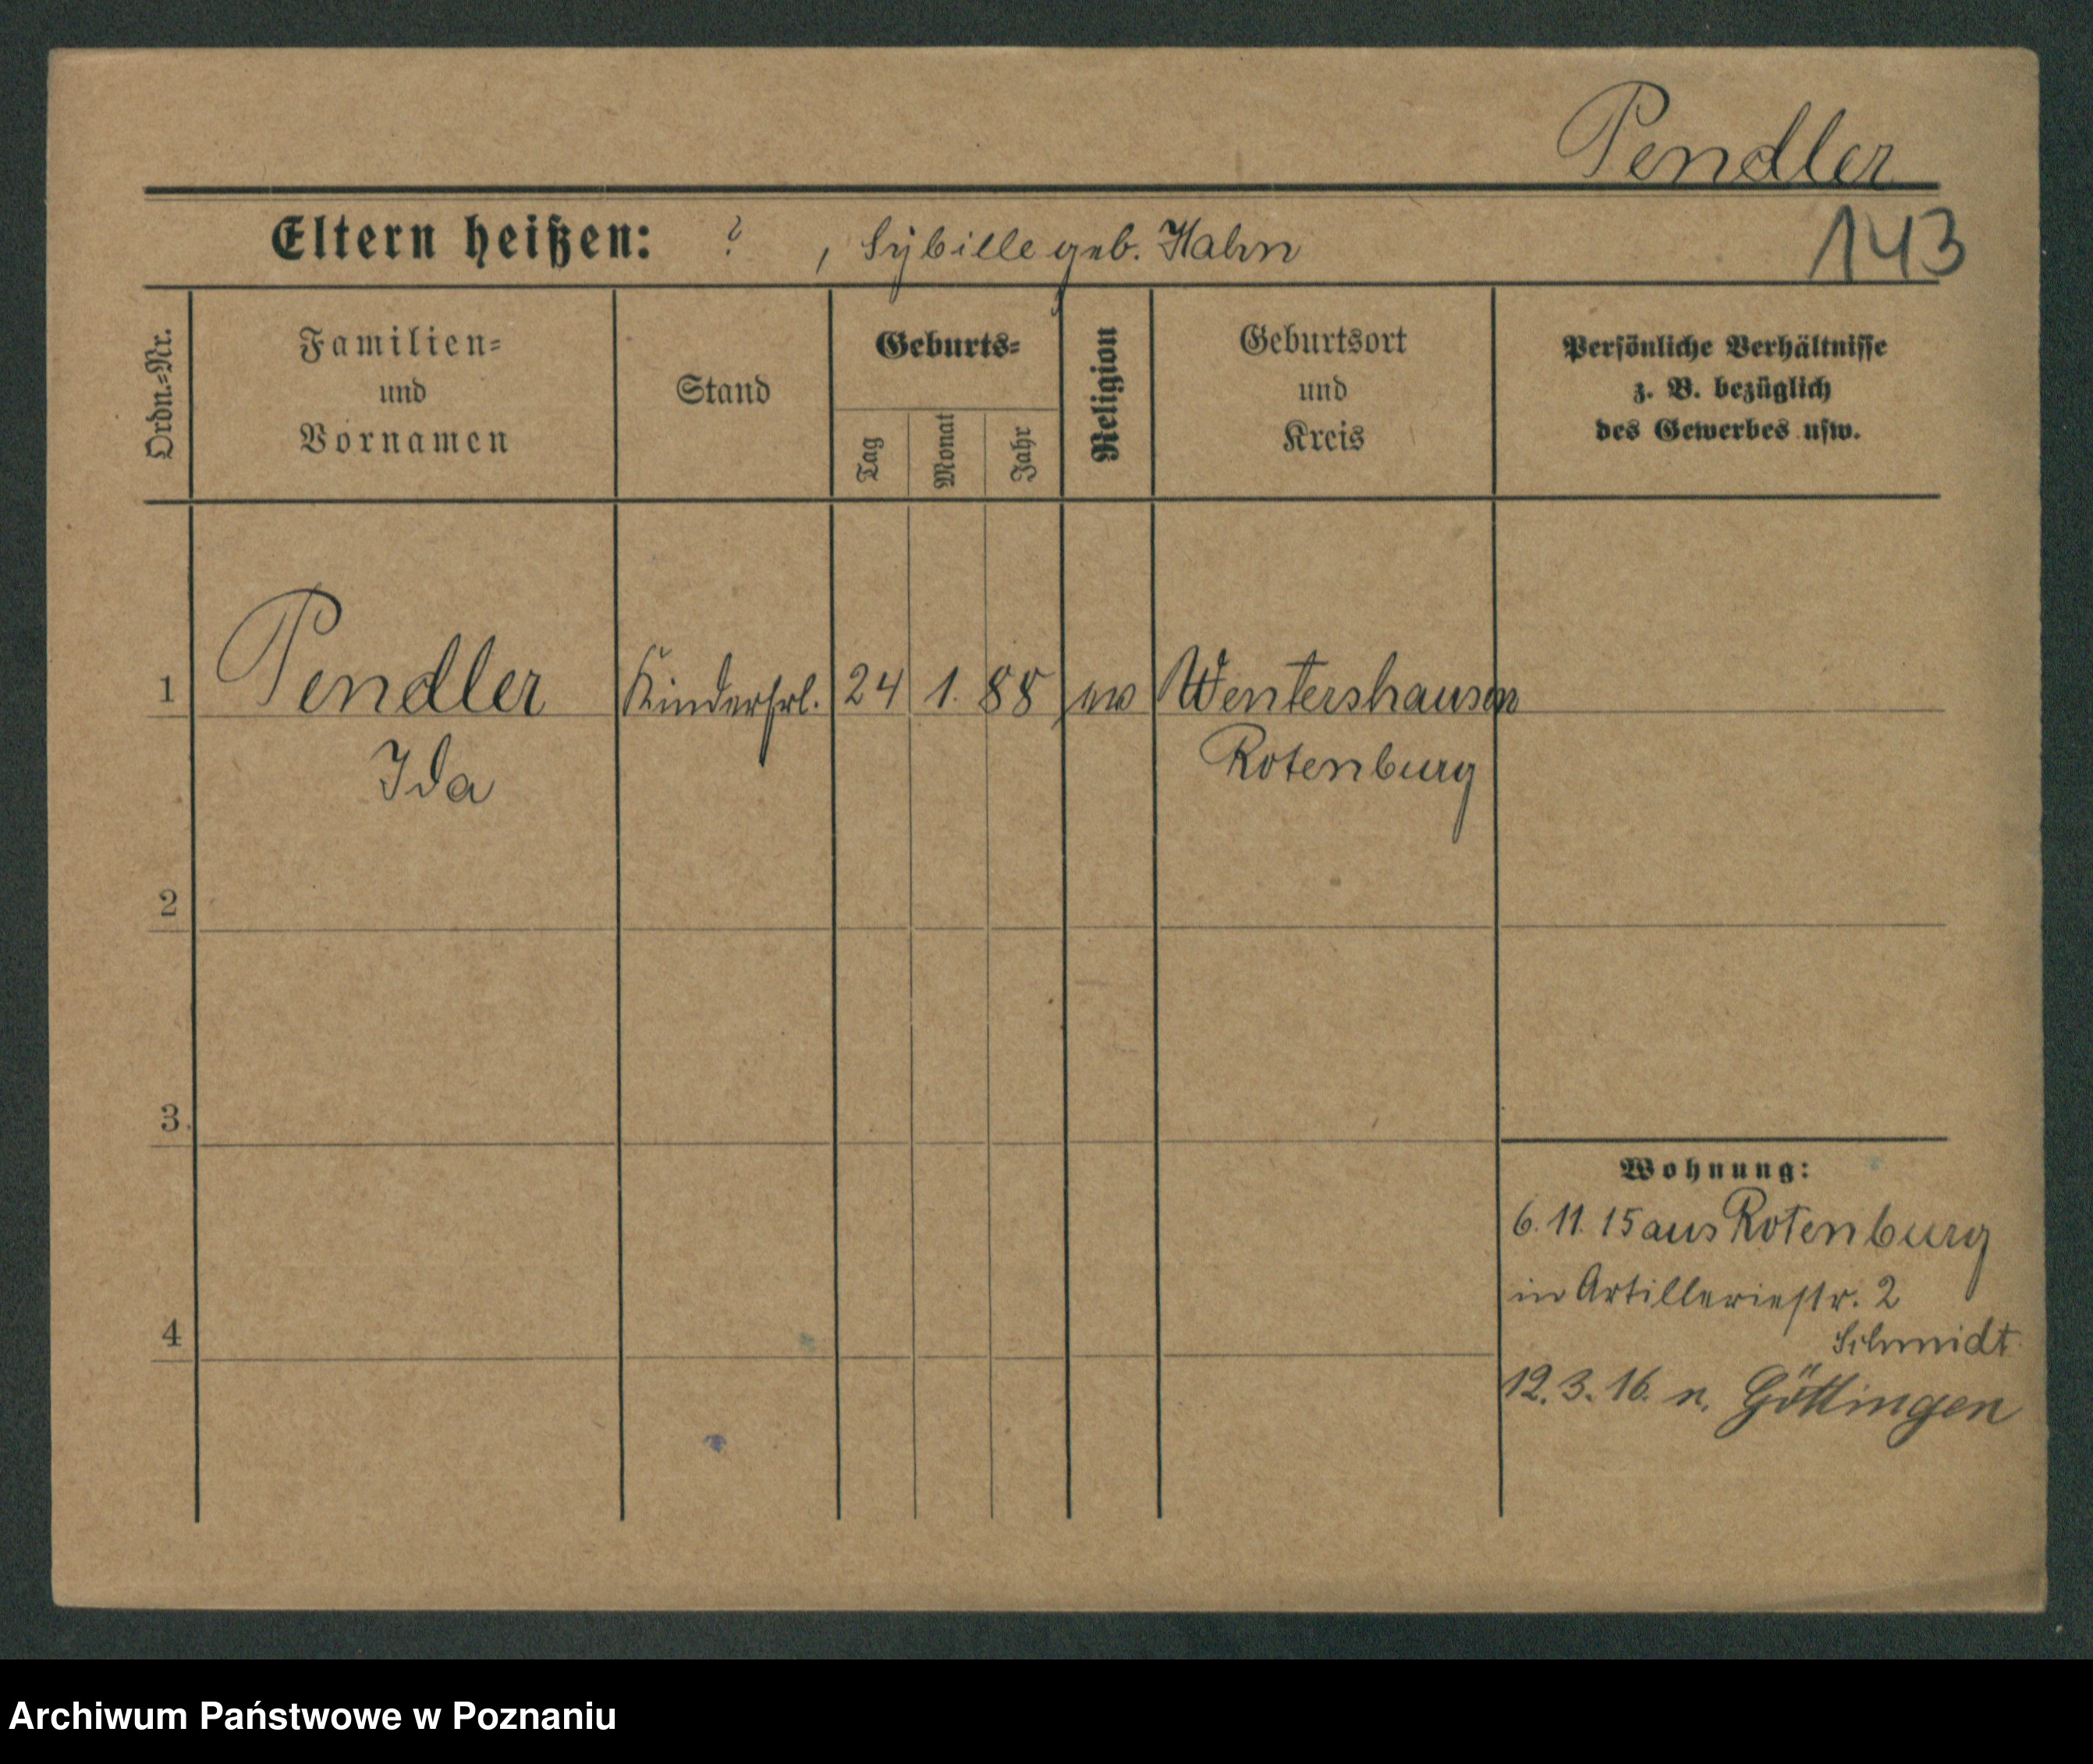 Pendler
Eltern heißen: ? , Sybille geb. Hahn
143
Ordn.=Nr.
Familien=
und
Vornamen
Stand
Geburts=
Tag
Monat
Jahr
Religion
Geburtsort
und
Kreis
Persönliche Verhältnisse
z. B. bezüglich
des Gewerbes usw.
1 Pendler Kinderfrl. 24 1. 88 ev Wentershausen
Ida Rotenburg
2
3.
Wohnung:
6. 11. 15 aus Rotenburg
in Artilleriestr. 2
4
Schmidt
12. 3. 16. n. Göttingen
Archiwum Państwowe w Poznaniu